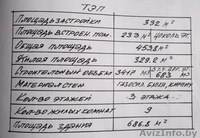 ТЭП
Площадь застройки 392 м²
Площадь встроен. пом. 233 м²
Общая площадь 453.8 м²
Жилая площадь 329.2 м²
Строительный объём 3417 м³ 683
Материал стен газосил. блок, кирпич
Кол-во этажей 3 этажа
Кол-во жилых комнат 9
Площадь здания 686.8 м²
Avizinfo.by